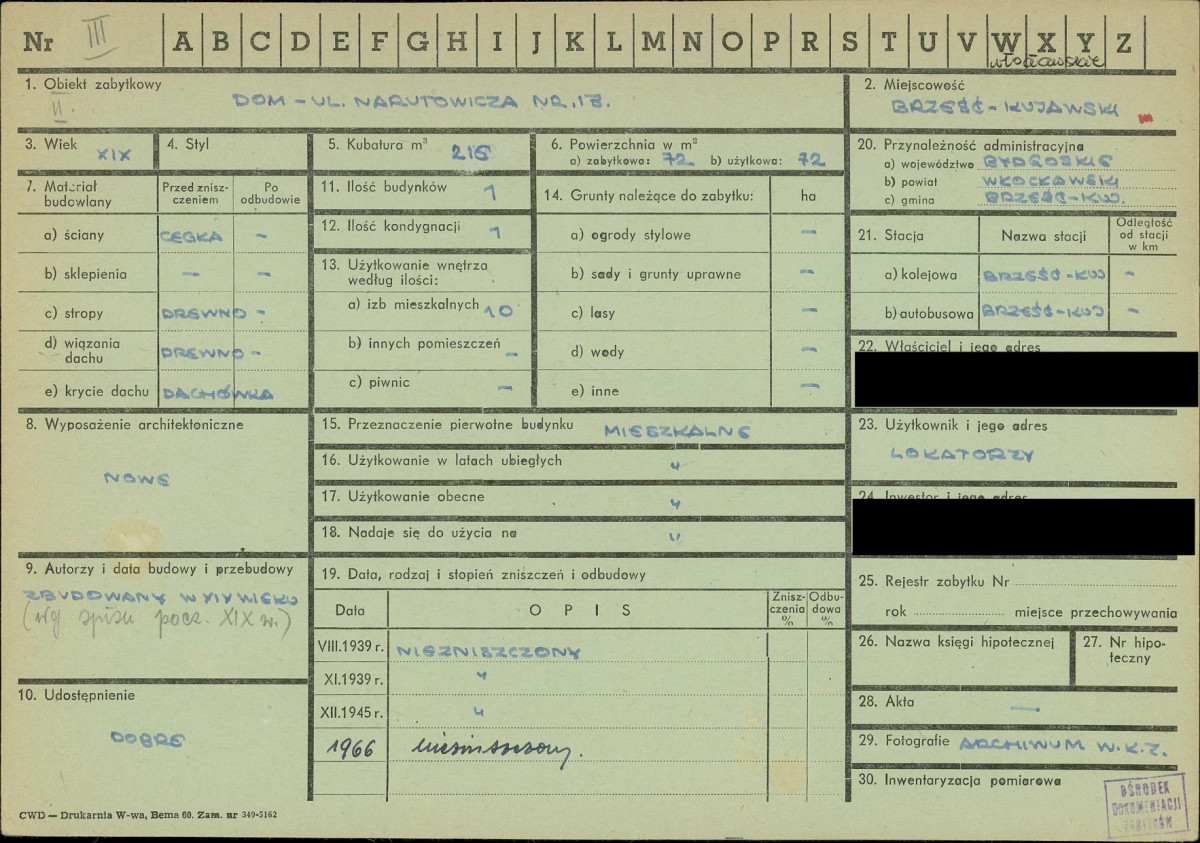 Nr III A B C D E F G H I J K L M N O P R S T U V W X Y Z
włocławskie
1. Obiekt zabytkowy
II.
DOM – UL. NARUTOWICZA NR.
2. Miejscowość
BRZEŚĆ – KUJAWSKI
3. Wiek XIX
4. Styl
5. Kubatura m³ 216
6. Powierzchnia w m²
a) zabytkowa: 72 b) użytkowa: 72
20. Przynależność administracyjna
a) województwo BYDGOSKIE
b) powiat WŁOCŁAWSKI
c) gmina BRZEŚĆ – KUJ.
7. Materiał budowlany
Przed zniszczeniem
Po odbudowie
a) ściany CEGŁA –
b) sklepienia – –
c) stropy DREWNO –
d) wiązania dachu DREWNO –
e) krycie dachu DACHÓWKA
11. Ilość budynków 1
12. Ilość kondygnacji 1
13. Użytkowanie wnętrza
według ilości:
a) izb mieszkalnych 10
b) innych pomieszczeń –
c) piwnic –
14. Grunty należące do zabytku: ha
a) ogrody stylowe –
b) sady i grunty uprawne –
c) lasy –
d) wody –
e) inne –
21. Stacja Nazwa stacji Odległość od stacji w km
a) kolejowa BRZEŚĆ – KUJ –
b) autobusowa BRZEŚĆ – KUJ –
22. Właściciel i jego adres
8. Wyposażenie architektoniczne
NOWE
15. Przeznaczenie pierwotne budynku MIESZKALNE
16. Użytkowanie w latach ubiegłych "
17. Użytkowanie obecne "
18. Nadaje się do użycia na "
23. Użytkownik i jego adres
LOKATORZY
24. Inwestor i jego adres
9. Autorzy i data budowy i przebudowy
ZBUDOWANY W XIX WIEKU
(wg spisu pocz. XIX w.)
10. Udostępnienie
DOBRE
19. Data, rodzaj i stopień zniszczeń i odbudowy
Data OPIS Zniszczenia % Odbudowa %
VIII.1939 r. NIEZNISZCZONY
XI.1939 r. "
XII.1945 r. "
1966 niezniszczony.
25. Rejestr zabytku Nr
rok miejsce przechowywania
26. Nazwa księgi hipotecznej
27. Nr hipoteczny
28. Akta –
29. Fotografie ARCHIWUM W.K.Z.
30. Inwentaryzacja pomiarowa
OŚRODEK
DOKUMENTACJI
ZABYTKÓW
CWD — Drukarnia W-wa, Bema 60. Zam. nr 349-5162